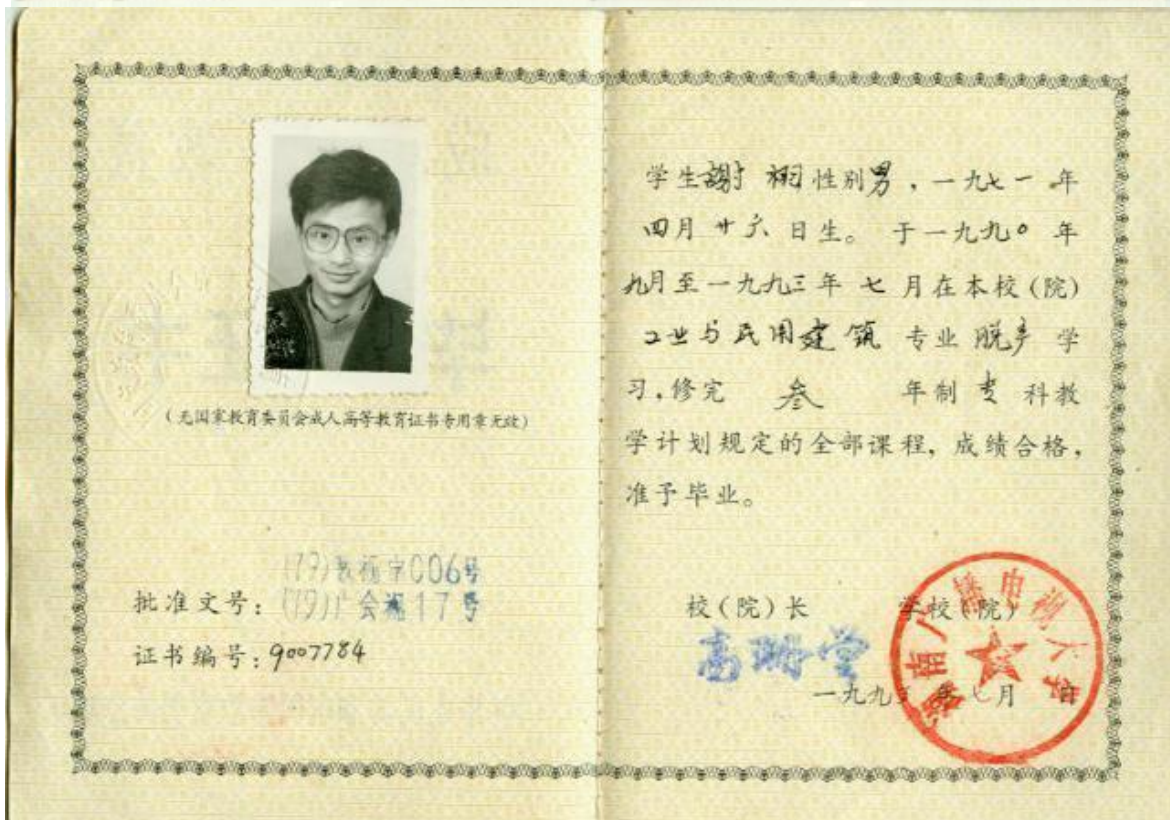 (无国家教育委员会成人高等教育证书专用章无效)
(79)教 字006号
批准文号：(79)广会 17号
证书编号：9007784
学生謝 栩 性别男，一九七一年
四月廿六日生。于一九九〇年
九月至一九九三年七月在本校(院)
工业与民用建筑 专业 脱产 学
习，修完 叁 年制 专 科教
学计划规定的全部课程，成绩合格，
准予毕业。
校(院)长 学校(院)
高 堂
一九九三年七月 日
湖南广播电视大学